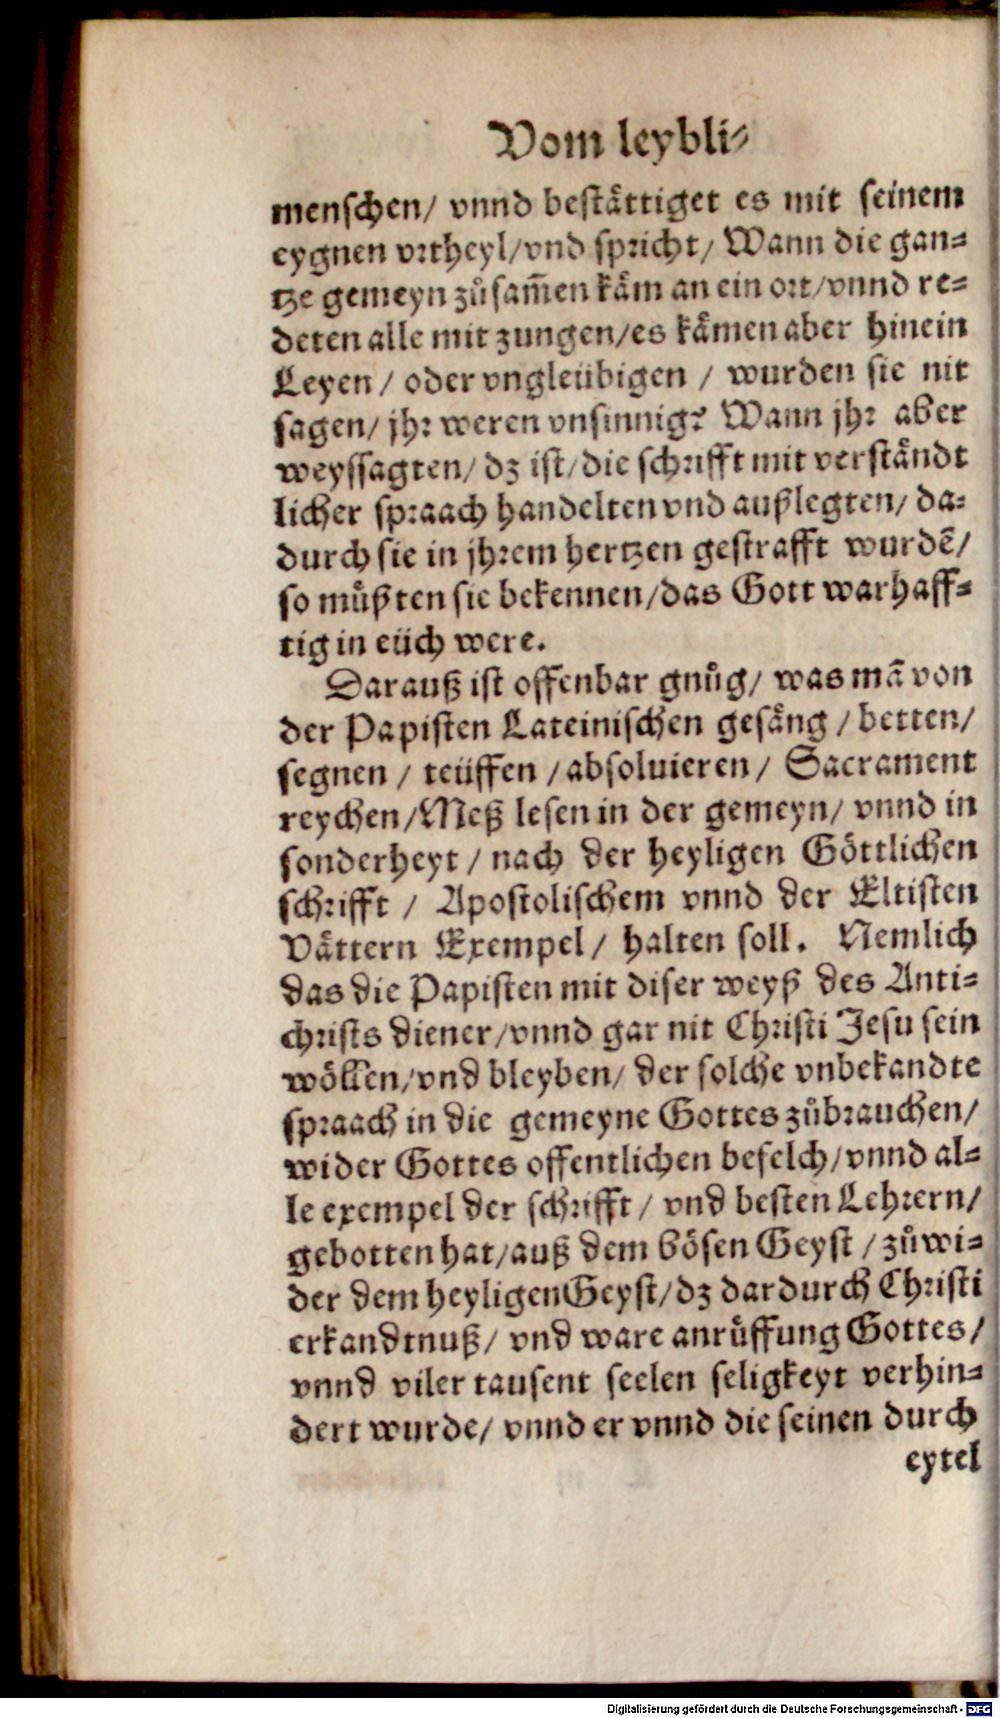 Vom leybli⸗
menschen/ vnnd beståttiget es mit seinem
eygnen vrtheyl/vnd spricht/ Wann die gan⸗
tze gemeyn zůsam̃en kåm an ein ort/vnnd re⸗
deten alle mit zungen/es kåmen aber hinein
Leyen / oder vngleübigen / wurden sie nit
sagen/ jhr weren vnsinnig? Wann jhr aber
weyssagten/ dz ist/die schrifft mit verståndt
licher spraach handelten vnd außlegten/ da⸗
durch sie in jhrem hertzen gestrafft wurdẽ/
so můßten sie bekennen/das Gott warhaff⸗
tig in eüch were.
Darauß ist offenbar gnůg/ was mã von
der Papisten Lateinischen gesång / betten/
segnen / teüffen /absoluieren/ Sacrament
reychen/Meß lesen in der gemeyn/ vnnd in
sonderheyt / nach der heyligen Göttlichen
schrifft / Apostolischem vnnd der Eltisten
Våttern Exempel/ halten soll. Nemlich
das die Papisten mit diser weyß des Anti⸗
christs diener/vnnd gar nit Christi Jesu sein
wöllen/vnd bleyben/ der solche vnbekandte
spraach in die gemeyne Gottes zůbrauchen/
wider Gottes offentlichen befelch/vnnd al⸗
le exempel der schrifft / vnd besten Lehrern/
gebotten hat/auß dem bösen Geyst / zůwi⸗
der dem heyligen Geyst/dz dardurch Christi
erkandtnuß/ vnd ware anrůffung Gottes/
vnnd viler tausent seelen seligkeyt verhin⸗
dert wurde/ vnnd er vnnd die seinen durch
eytel
Digitalisierung gefördert durch die Deutsche Forschungsgemeinschaft - DFG